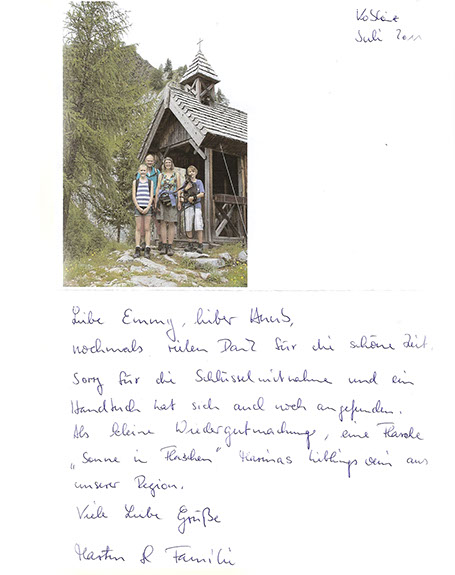 Koblenz
Juli 2011
Liebe Emmy, lieber Huub,
nochmals vielen Dank für die schöne Zeit.
Sorry für die Schlüsselmitnahme und ein
Handtuch hat sich auch noch angefunden.
Als kleine Wiedergutmachung, eine Flasche
„Sonne in Flaschen" Marinas Lieblingswein aus
unserer Region.
Viele Liebe Grüße
Martin & Familie